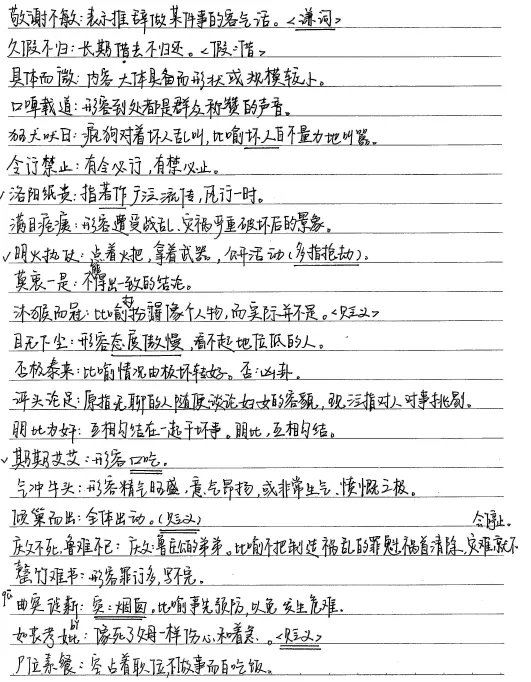 敬谢不敏：表示推辞做某件事的客气话。<谦词>
久假不归：长期借去不归还。<假：借>
具体而微：内容大体具备而形状或规模较小。
口碑载道：形容到处都是群众称赞的声音。
狂犬吠日：疯狗对着坏人乱叫，比喻坏人自不量力地叫嚣。
令行禁止：有令必行，有禁必止。
洛阳纸贵：指著作广泛流传，风行一时。
满目疮痍：形容遭受战乱、灾祸严重破坏后的景象。
明火执仗：点着火把，拿着武器，公开活动（多指抢劫）。
莫衷一是：不能得出一致的结论。
沐猴而冠：比喻打扮得像个人物，而实际并不是。<贬义>
目无下尘：形容态度傲慢，看不起地位低的人。
否极泰来：比喻情况由极坏转好。否：凶卦。
评头论足：原指无聊的人随便谈论妇女的容貌，现泛指对人对事挑剔。
朋比为奸：互相勾结在一起干坏事。朋比，互相勾结。
期期艾艾：形容口吃。
气冲牛头：形容精气旺盛，意气昂扬，或非常生气、愤慨之极。
倾巢而出：全体出动。（贬义）
庆父不死，鲁难不已：庆父：鲁庄公的弟弟。比喻不把制造祸乱的罪魁祸首清除，灾难就不会停止。
罄竹难书：形容罪行多，写不完。
曲突徙薪：突：烟囱。比喻事先预防，以免发生危难。
如丧考妣：bǐ 像死了父母一样伤心和着急。<贬义>
尸位素餐：空占着职位，不做事而白吃饭。